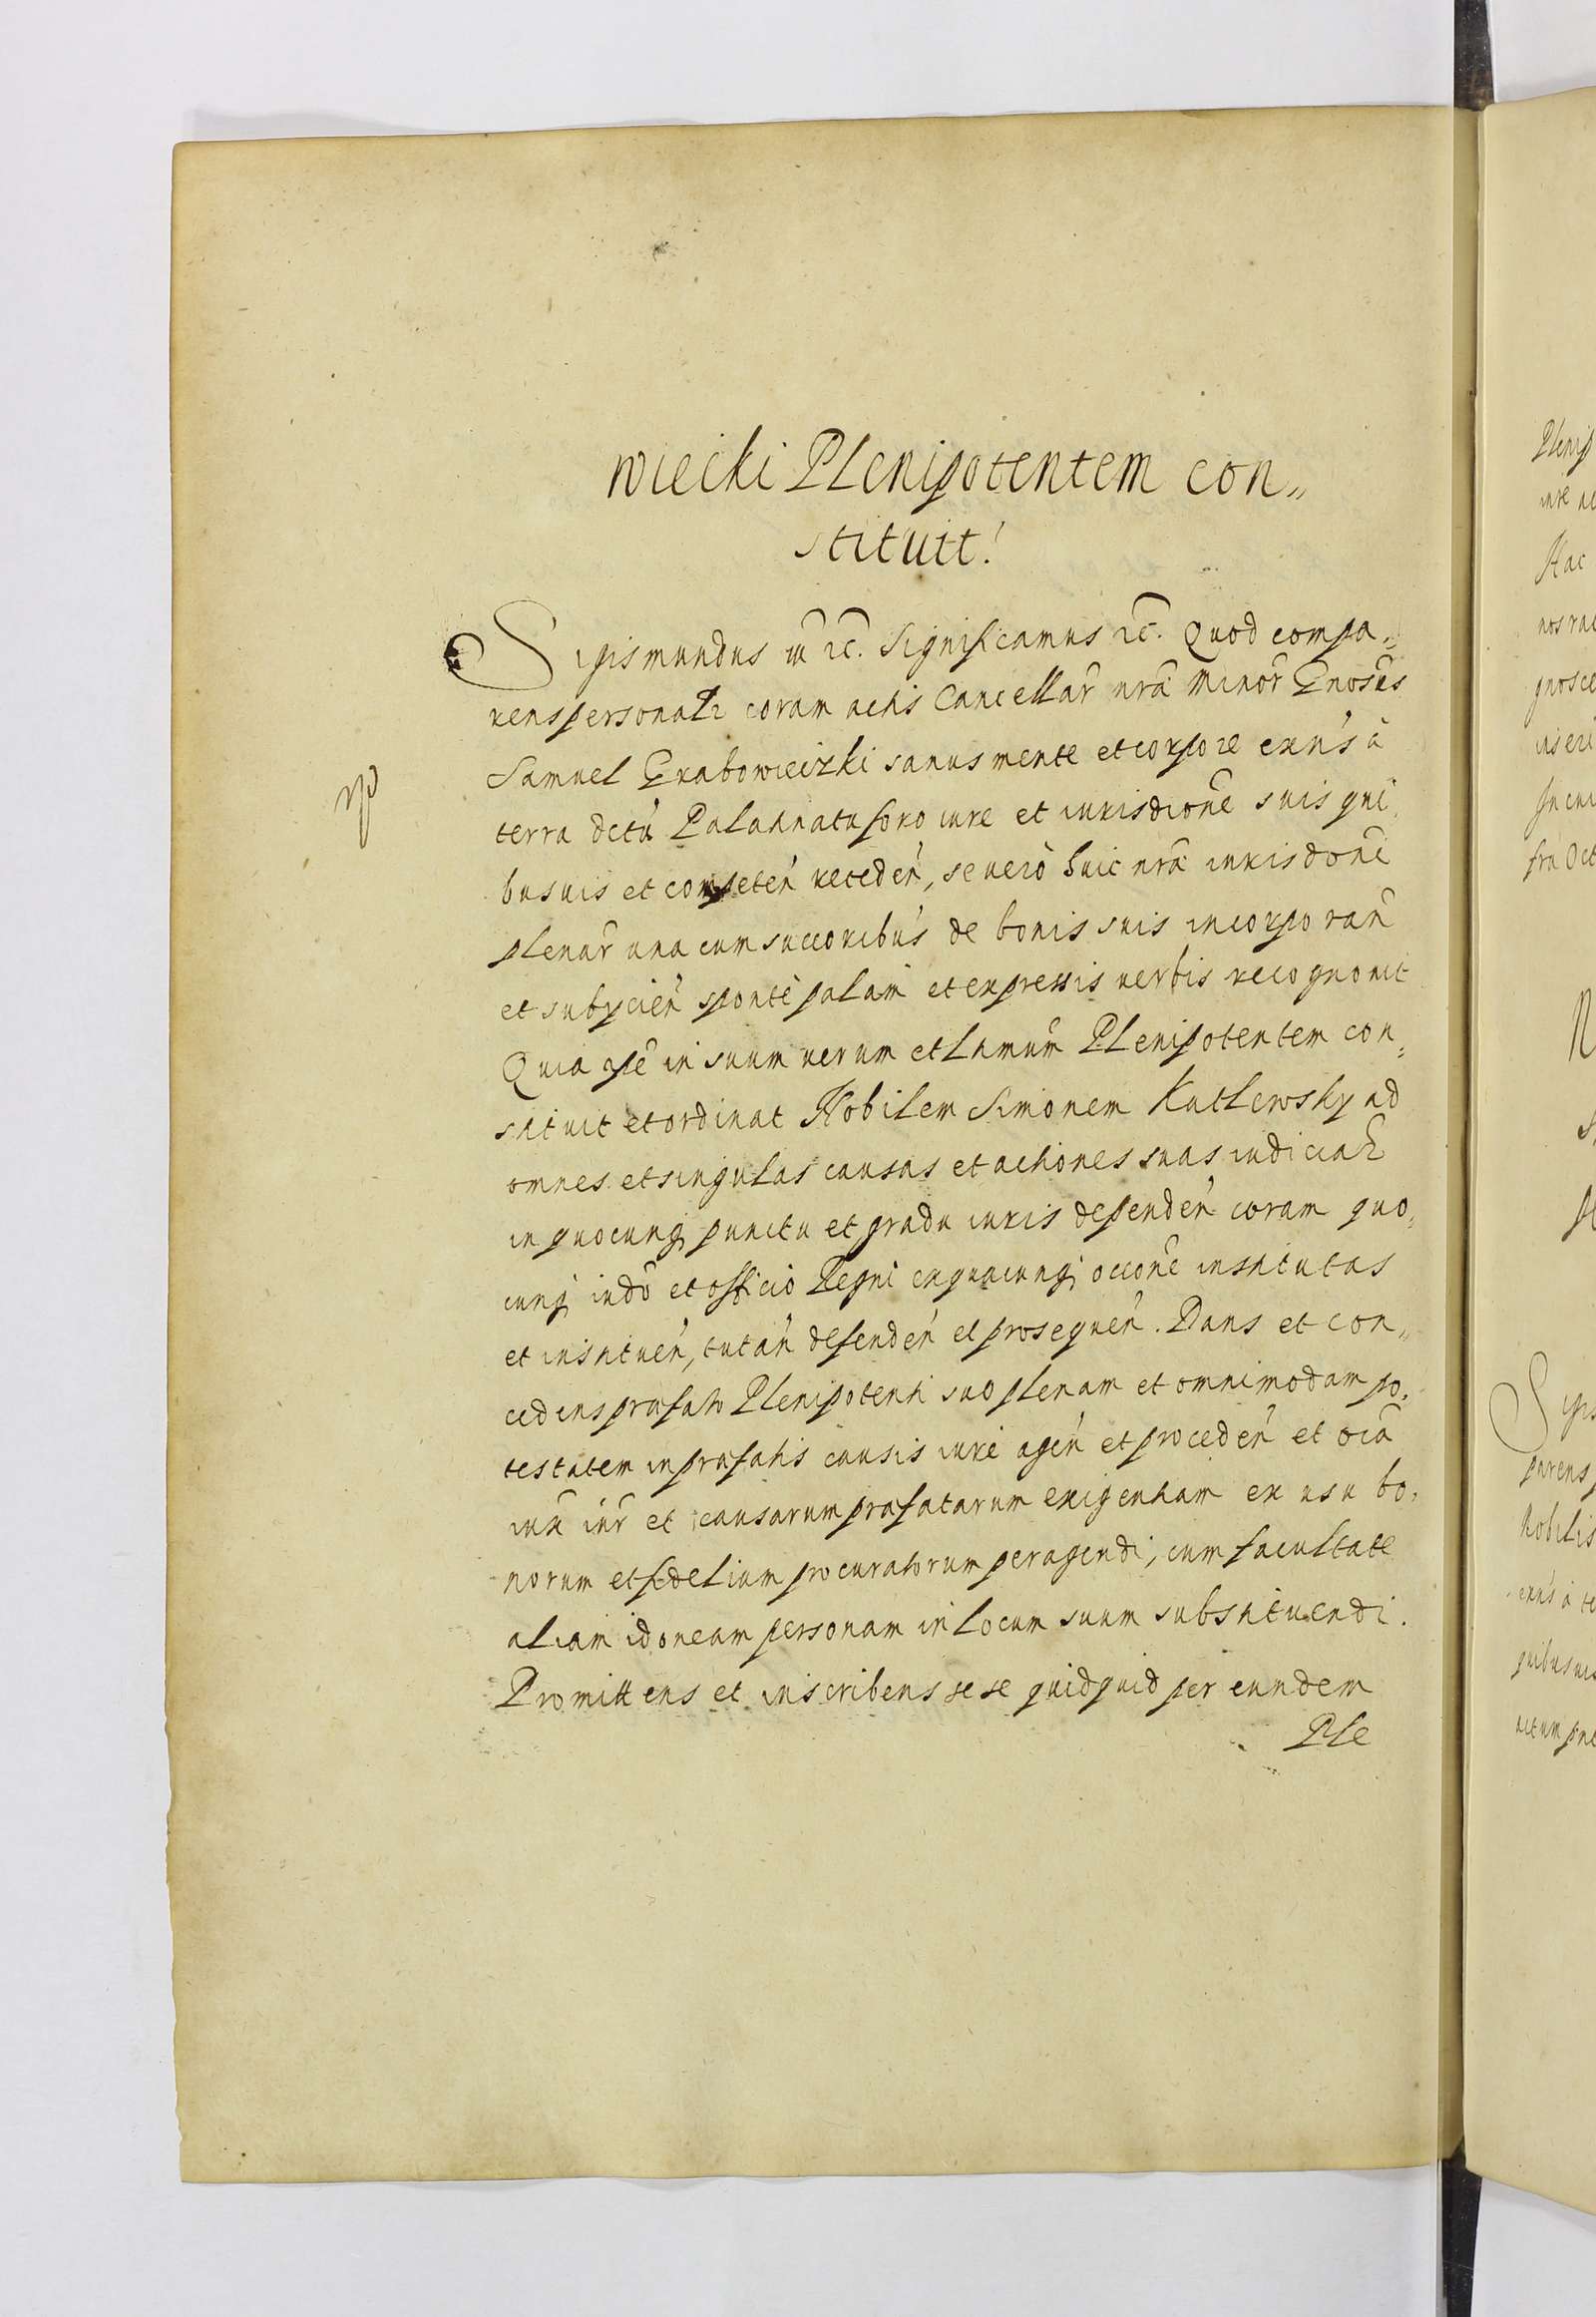 wiecki Plenipotentem con„
stituit.
Sigismundus III etc. Significamus etc. Quod compa„
rens personalr coram actis Cancellar nrã Minor Gnosus
Samuel Grabowieczki sanus mente et corpore exñs à
terra dctũ Palatinatu foro iure et iurisdione suis qui
busuis et competeñ recedeñ, se vero huic nrã iurisdoni
plenar una cum succoribus de bonis suis incorporañ
et subycieñ sponte palam et expressis verbis recognovit
Quia ipse in suum verum et ltimum Plenipotentem con„
stituit et ordinat Nobilem Simonem Kutlewsky ad
omnes et singulas causas et actiones suas iudicial
in quocunq punctu et gradu iuris dependeñ coram quo„
cunq iudo et officio Regni ex quacunq occone institutas
et institueñ, tutañ defendeñ et prosequeñ. Dans et con„
cedens præfato Plenipotenti suo plenam et omnimodam po„
testatem in præfatis causis iure ageñ et procedeñ et oiã
iux iur et causarum præfatarum exigentiam ex usu bo„
norum et fidelium procuratorum peragendi, cum facultate
aliam idoneam personam in locum suum substituendi.
Promittens et inscribens sese quidquid per eundem
Ple
Plenip
iure ac
Hac
nos rat
gnosce
In cui
fra Oct
Sigis
parens
Nobilis
exñs à te
quibusuis